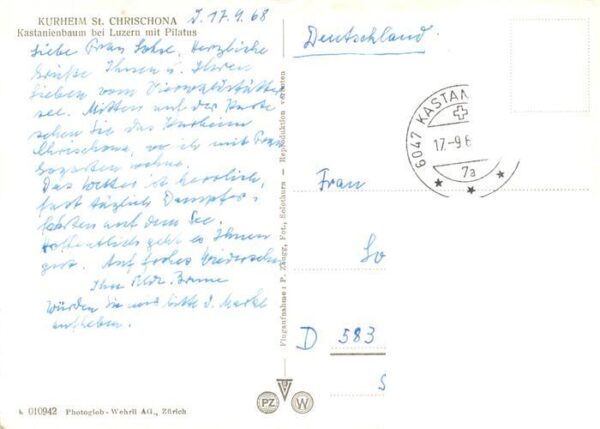 KURHEIM St. CHRISCHONA
Kastanienbaum bei Luzern mit Pilatus
17.9.68
Liebe Frau Herzliche
Grüße Ihnen u. Ihren
Lieben vom Vierwaldstätter
see. Mitten auf der Karte
sehen Sie das Kurheim
Chrischona, wo ich mit Frau
wohne.
Das Wetter ist herrlich,
fast täglich Dampfer-
fahrten auf dem See.
Hoffentlich geht es Ihnen
gut. Auf frohes Wiedersehn
Ihre
Würden Sie uns bitte d. Marke
aufheben.
Flugaufnahme: P. Zaugg, Fot., Solothurn - Reproduktion verboten
Deutschland
6047 KASTAN
17-9 6
7a
Frau
So
D 583
S
PZ
W
k 010942 Photoglob-Wehrli AG., Zürich